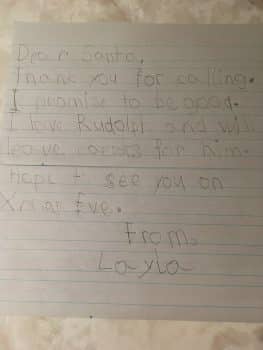 Dear Santa,
Thank you for calling.
I promise to be good.
I love Rudolph and will
leave carrots for him.
Hope t see you on
Xmas Eve.
From,
Layla